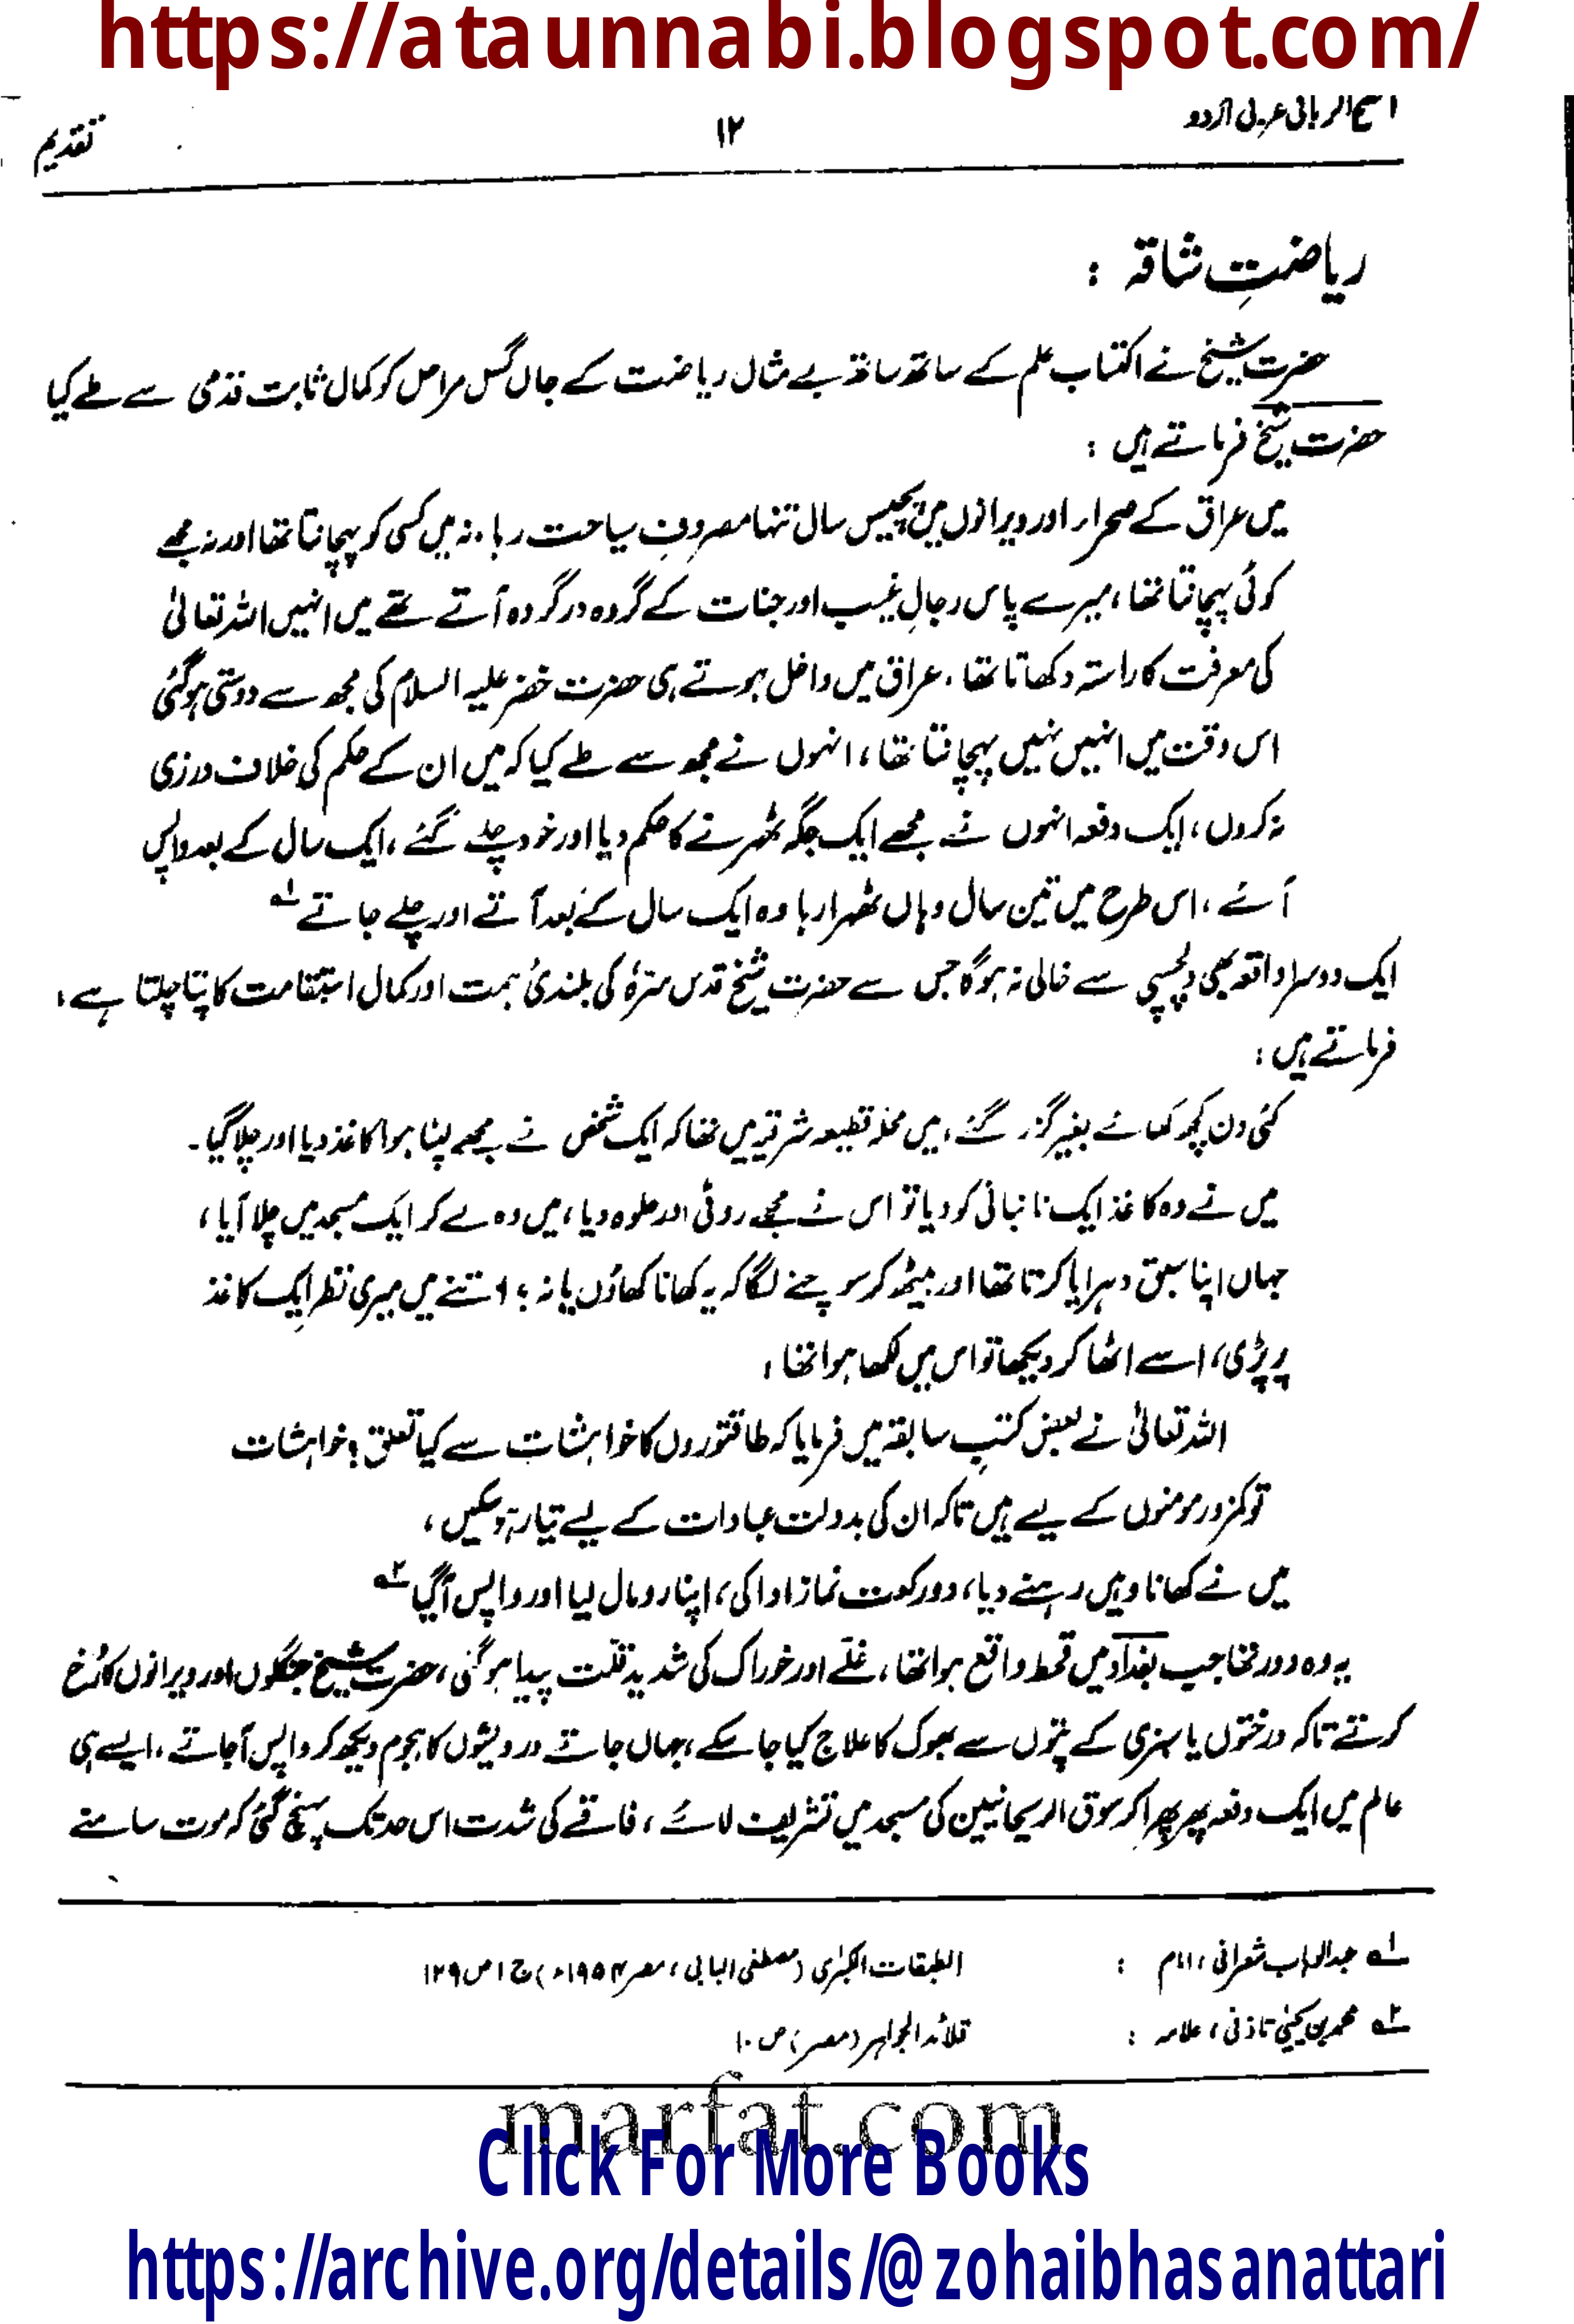 https://ataunnabi.blogspot.com/
الفتح الربانی عربی اردو
۱۲
تقدیم
ریاضتِ شاقہ :
حضرت شیخ نے اکتساب علم کے ساتھ ساتھ بے مثال ریاضت کے جاں گسل مراحل کو کمال ثابت قدمی سے طے کیا
حضرت شیخ فرماتے ہیں :
میں عراق کے صحراء اور ویرانوں میں پچیس سال تنہا مصروفِ سیاحت رہا، نہ میں کسی کو پہچانتا تھا اور نہ مجھے
کوئی پہچانتا تھا، میرے پاس رجالِ غیب اور جنات کے گروہ در گروہ آتے تھے میں انہیں اللہ تعالیٰ
کی معرفت کا راستہ دکھاتا تھا، عراق میں داخل ہوتے ہی حضرت خضر علیہ السلام کی مجھ سے دوستی ہو گئی
اس وقت میں انہیں نہیں پہچانتا تھا، انہوں نے مجھ سے طے کیا کہ میں ان کے حکم کی خلاف ورزی
نہ کروں، ایک دفعہ انہوں نے مجھے ایک جگہ ٹھہرنے کا حکم دیا اور خود چلے گئے، ایک سال کے بعد واپس
آئے، اس طرح میں تین سال وہاں ٹھہرا رہا وہ ایک سال کے بعد آتے اور چلے جاتے ۱؎
ایک دوسرا واقعہ بھی دلچسپی سے خالی نہ ہوگا جس سے حضرت شیخ قدس سرہٗ کی بلندیٔ ہمت اور کمال استقامت کا پتا چلتا ہے،
فرماتے ہیں :
کئی دن کچھ کھائے بغیر گزر گئے، میں محلہ قطیعہ شرقیہ میں تھا کہ ایک شخص نے مجھے لپٹا ہوا کاغذ دیا اور چلا گیا۔
میں نے وہ کاغذ ایک نانبائی کو دیا تو اس نے مجھے روٹی اور حلوہ دیا، میں وہ لے کر ایک مسجد میں چلا آیا،
جہاں اپنا سبق دہرایا کرتا تھا اور بیٹھ کر سوچنے لگا کہ یہ کھانا کھاؤں یا نہ؟ اتنے میں میری نظر ایک کاغذ
پر پڑی، اسے اٹھا کر دیکھا تو اس میں لکھا ہوا تھا :
اللہ تعالیٰ نے بعض کتبِ سابقہ میں فرمایا کہ طاقتوروں کا خواہشات سے کیا تعلق؟ خواہشات
تو کمزور مومنوں کے لیے ہیں تاکہ ان کی بدولت عبادات کے لیے تیار ہو سکیں،
میں نے کھانا وہیں رہنے دیا، دو رکعت نماز ادا کی، اپنا رومال لیا اور واپس آگیا ۲؎
یہ وہ دور تھا جب بغداد میں قحط واقع ہوا تھا، غلّے اور خوراک کی شدید قلّت پیدا ہو گئی، حضرت شیخ جنگلوں اور ویرانوں کا رُخ
کرتے تاکہ درختوں یا سبزی کے پتّوں سے بھوک کا علاج کیا جا سکے، جہاں جاتے درویشوں کا ہجوم دیکھ کر واپس آجاتے، ایسے ہی
عالم میں ایک دفعہ پھر پھرا کر سوق الریحانیین کی مسجد میں تشریف لائے، فاقے کی شدت اس حد تک پہنچ گئی کہ موت سامنے
۱؎ عبدالوہاب شعرانی، امام : الطبقات الکبرٰی (مصطفی البابی، مصر ۱۹۵۴ء) ج ۱ ص ۱۲۹
۲؎ محمد بن یحییٰ تاذفی، علامہ : قلائد الجواہر (مصر) ص ۱۰
marfat.com
Click For More Books
https://archive.org/details/@zohaibhasanattari